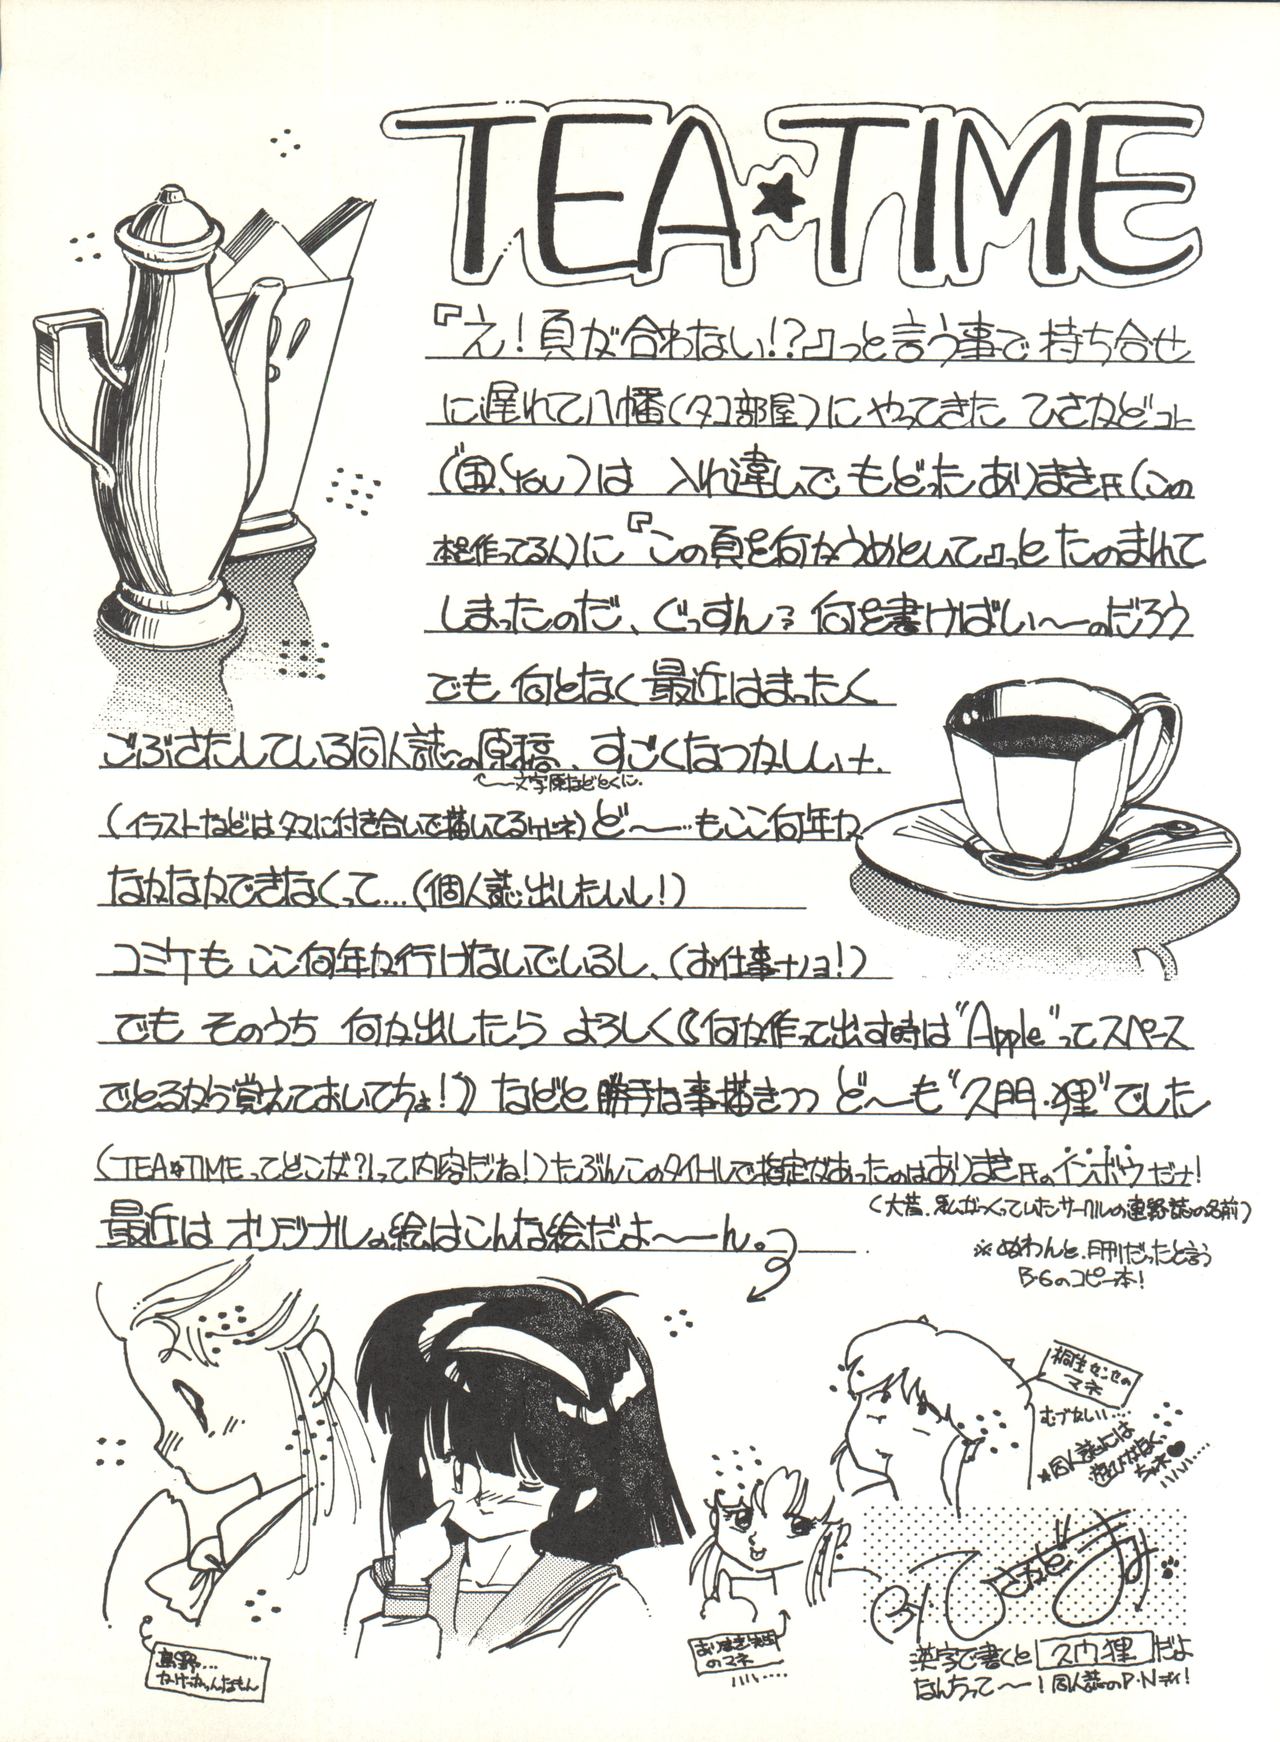 TEA★TIME
『え!頁が合わない!?』っと言う事で 持ち合せ
に遅れて八幡(タコ部屋)にやってきた ひさかどコト
は 入れ違いで もどったありまき氏(この
本を作ってる人)に『この頁を何かうめといて』っと たのまれて
しまったのだ、ぐっすん? 何を書けばい〜のだろう
でも 何となく最近はまったく
ごぶさたしている同人誌の原稿、すごくなつかしいナ.
文字原などとくに.
(イラストなどはタマに付き合いで描いてるけどネ) ど〜…もここ何年か
なかなかできなくって…(個人誌出したいし!)
コミケも ここ何年か行けないでいるし、(お仕事ナノヨ!)
でも そのうち 何か出したら よろしく《何か作って出す時は"Apple"ってスペース
でとるから覚えておいてちょ!》 などと勝手な事描きつつ ど〜も"久門.狸"でした
(TEA★TIMEってどこが?って内容だね!) たぶんこのタイトルで指定があったのはありまき氏のインボウだナ!
(大昔.私がつくっていたサークルの連絡誌の名前)
最近は オリジナルの絵はこんな絵だよ〜ん。
※ぬわんと.月刊だったと言う
B-6のコピー本!
桐生センセの
マネ
むづかしい…
★同人誌には
遊びがなくっ
ちゃネ♥
ありまき先生
のマネ
漢字で書くと 久門狸 だよ
なんちって〜! 同人誌のP・Nデイ!